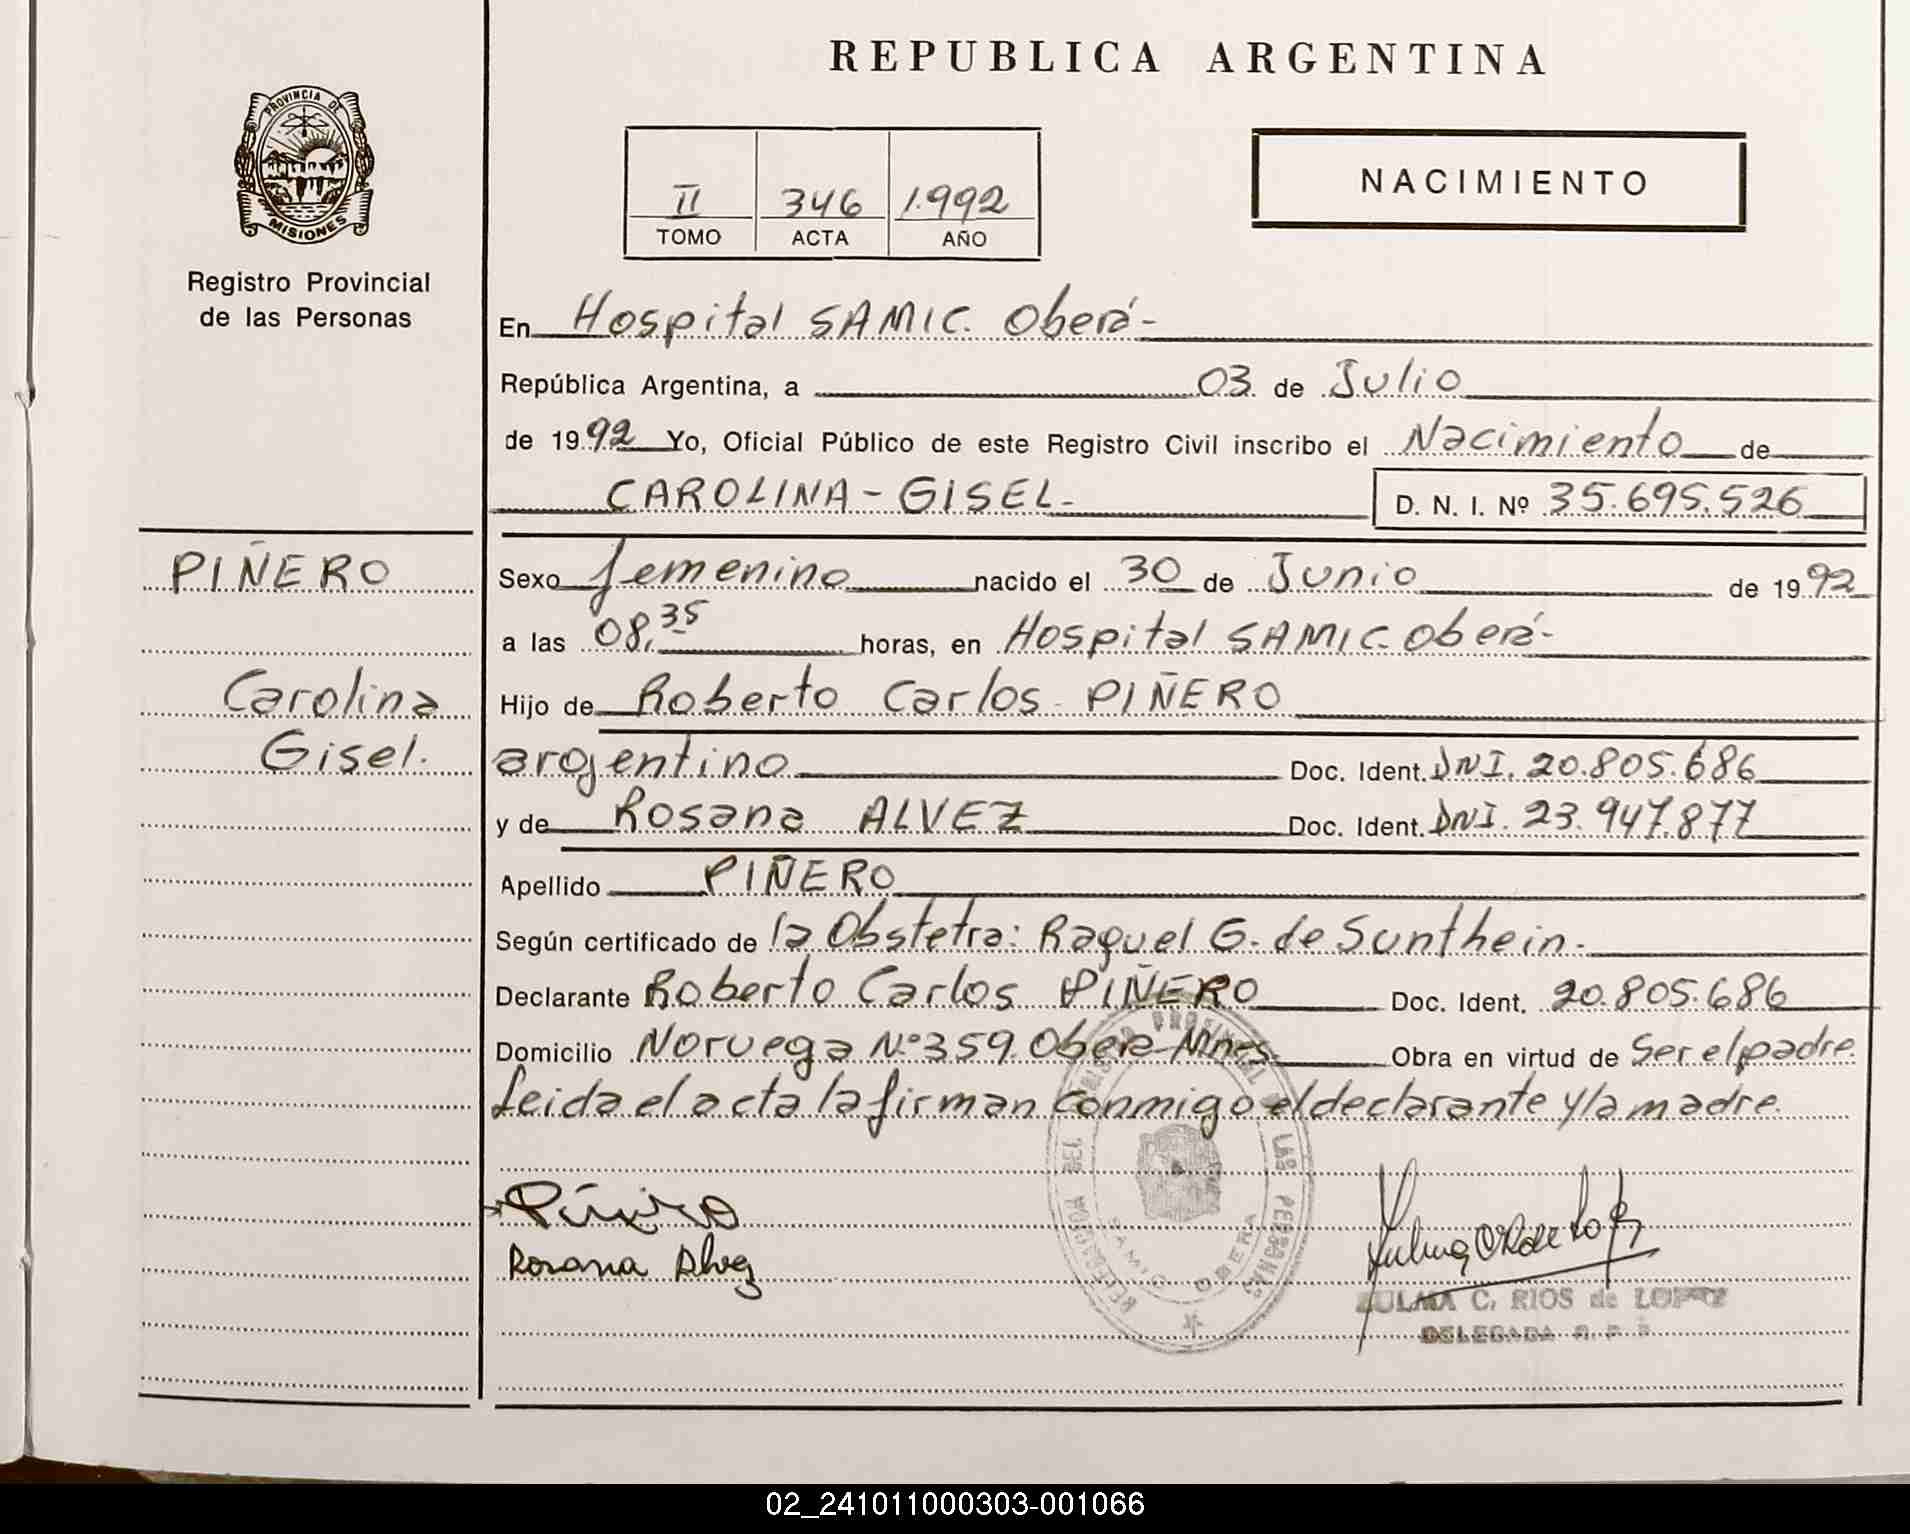 REPUBLICA ARGENTINA
PROVINCIA DE
MISIONES
Registro Provincial
de las Personas
II 346 1.992
TOMO ACTA AÑO
NACIMIENTO
En Hospital SAMIC. Oberá-
República Argentina, a 03 de Julio
de 1992 Yo, Oficial Público de este Registro Civil inscribo el Nacimiento de
CAROLINA-GISEL- D. N. I. Nº 35.695.526
PIÑERO
Carolina
Gisel.
Sexo femenino nacido el 30 de Junio de 1992
a las 08,35 horas, en Hospital SAMIC. Oberá-
Hijo de Roberto Carlos PIÑERO
argentino Doc. Ident. DNI. 20.805.686
y de Rosana ALVEZ Doc. Ident. DNI. 23.947.877
Apellido PIÑERO
Según certificado de la Obstetra: Raquel G. de Sunthein.
Declarante Roberto Carlos PIÑERO Doc. Ident. 20.805.686
Domicilio Noruega Nº 359. Oberá-Mnes. Obra en virtud de Ser el padre.
Leida el acta la firman conmigo el declarante y la madre.
REGISTRO PROVINCIAL DE LAS PERSONAS
SAMIC OBERA
Piñero
Rosana Alvez
ZULMA C. RIOS de LOPEZ
DELEGADA R. P. P.
02_241011000303-001066